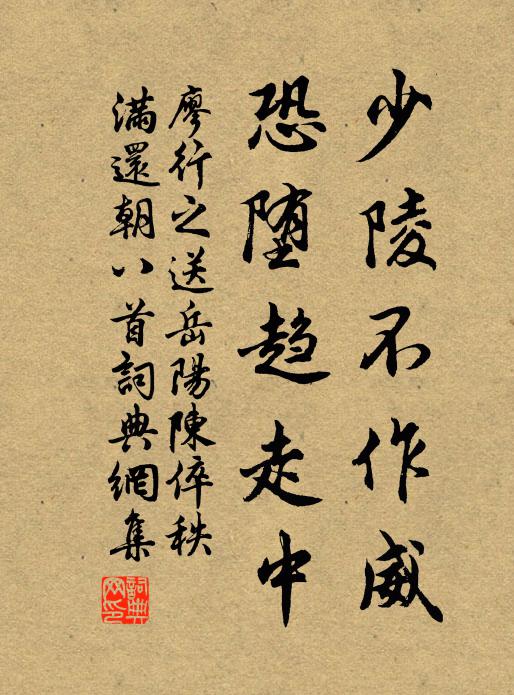 少陵不作威
恐堕趋走中
廖行之送岳陽陳倅秩
滿還朝八首詞典網集
詞典网印